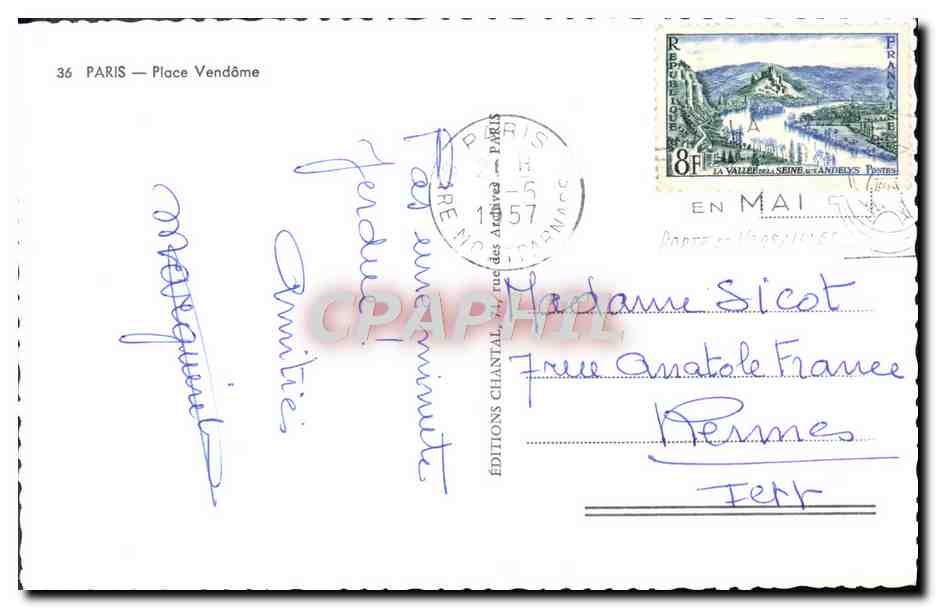 36 PARIS — Place Vendôme
Pas une minute
perdue !
Amitiés
ÉDITIONS CHANTAL, 74, rue des Archives — PARIS
PARIS
GARE MONTPARNASSE
1957
RÉPUBLIQUE FRANÇAISE
8F
LA VALLÉE DE LA SEINE AUX ANDELYS POSTES
LA
EN MAI
PORTE DE VERSAILLES
Madame Sicot
7 rue Anatole France
Rennes
CPAPHIL